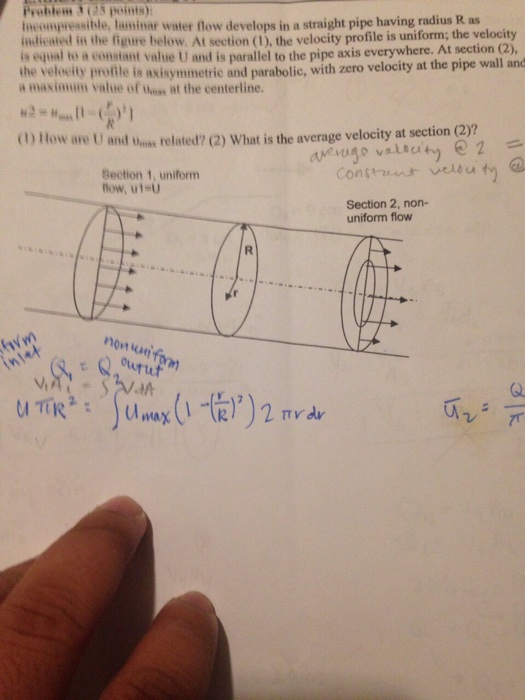 Problem 3 (25 points):
Incompressible, laminar water flow develops in a straight pipe having radius R as
indicated in the figure below. At section (1), the velocity profile is uniform; the velocity
is equal to a constant value U and is parallel to the pipe axis everywhere. At section (2),
the velocity profile is axisymmetric and parabolic, with zero velocity at the pipe wall and
a maximum value of umax at the centerline.
u2 = umax [1-(r/R)²]
(1) How are U and umax related? (2) What is the average velocity at section (2)?
average velocity @ 2 =
constant velocity @
Section 1, uniform
flow, u1=U
Section 2, non-
uniform flow
R
r
inlet
nonuniform
output
Q₁ = Q₂
V₁A₁ = ∫VdA
U πR² = ∫Umax (1-(r/R)²) 2πrdr
ū₂ = Q/π